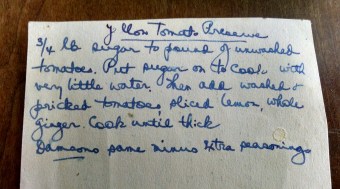 Yellow Tomato Preserve
3/4 lb sugar to pound of unwashed
tomatoes. Put sugar on to cook with
very little water. Then add washed &
pricked tomatoes, sliced lemon, whole
ginger. Cook until thick
Damsons same minus extra seasonings